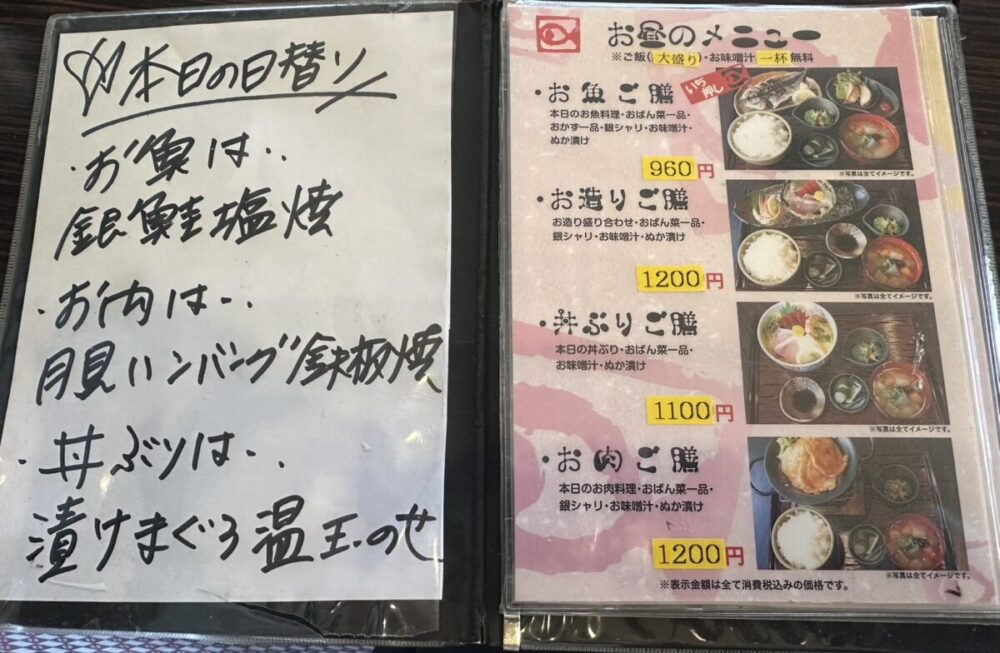 本日の日替り
・お魚は‥
銀鮭塩焼
・お肉は‥
月見ハンバーグ鉄板焼
・丼ぶりは‥
漬けまぐろ温玉のせ
お昼のメニュー
※ご飯(大盛り)・お味噌汁一杯無料
・お魚ご膳
いち押し
本日のお魚料理・おばん菜一品・
おかず一品・銀シャリ・お味噌汁・
ぬか漬け
960円
※写真は全てイメージです。
・お造りご膳
お造り盛り合わせ・おばん菜一品・
銀シャリ・お味噌汁・ぬか漬け
1200円
※写真は全てイメージです。
・丼ぶりご膳
本日の丼ぶり・おばん菜一品・
お味噌汁・ぬか漬け
1100円
※写真は全てイメージです。
・お肉ご膳
本日のお肉料理・おばん菜一品・
銀シャリ・お味噌汁・ぬか漬け
1200円
※写真は全てイメージです。
※表示金額は全て消費税込みの価格です。